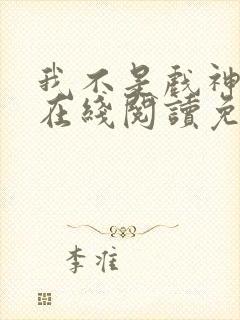 我不是戏神
在綫閱讀免
李准